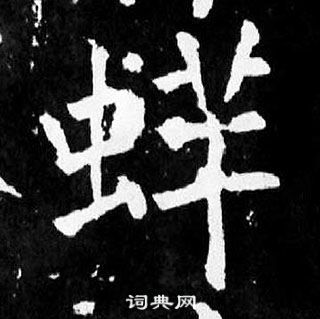 蛘
词典网